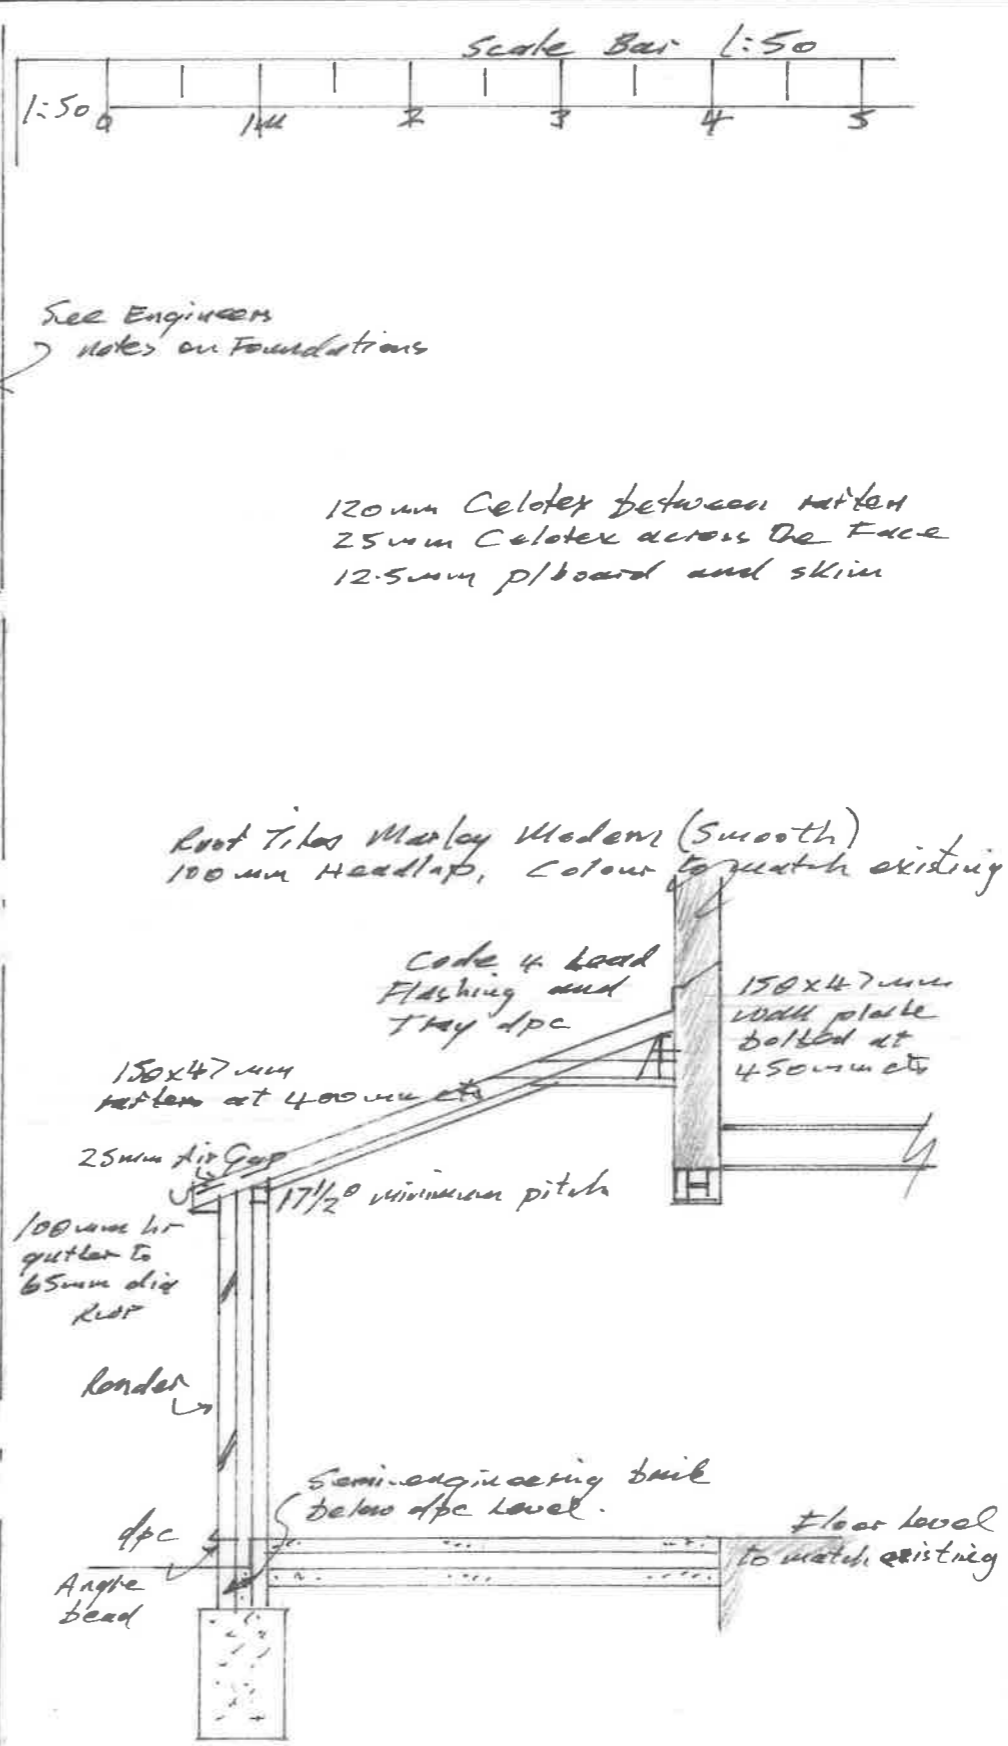 Scale Bar 1:50
1:50 0 1M 2 3 4 5
See Engineers
notes on Foundations
120mm Celotex between rafters
25mm Celotex across the Face
12.5mm p/board and skim
Roof Tiles Marley Modern (Smooth)
100mm Headlap, Colour to match existing
Code 4 Lead
Flashing and
Tray dpc
150x47mm
wall plate
bolted at
450mm cts
150x47mm
rafters at 400mm cts
25mm Air Gap
17½° minimum pitch
100mm hr
gutter to
65mm dia
RWP
Render
Semi-engineering brick
below dpc Level.
dpc
Floor Level
to match existing
Angle
bead